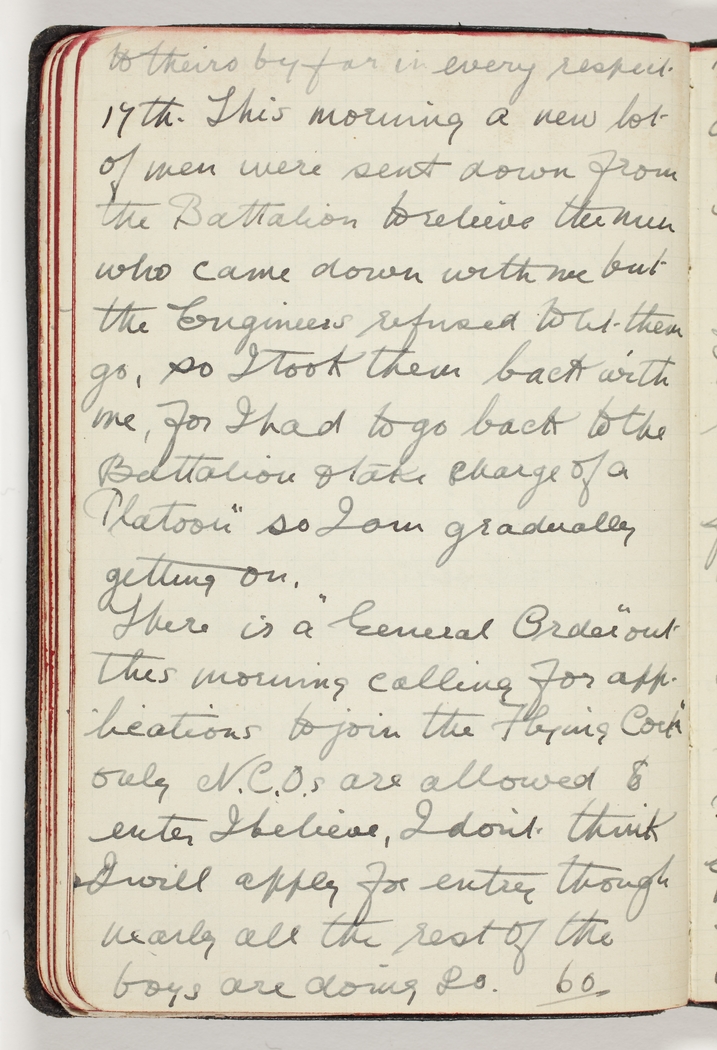 to theirs by far in every respect.
17th. This morning a new lot
of men were sent down from
the Battalion to relieve the men
who came down with me but
the Engineers refused to let them
go, so I took them back with
me, for I had to go back to the
Battalion & take charge of a
Platoon" so I am gradually
getting on.
There is a "General Order" out
this morning calling for app-
lications to join the "Flying Cork"
only N.C.O.s are allowed to
enter I believe, I don't think
I will apply for entry though
nearly all the rest of the
boys are doing so. 60